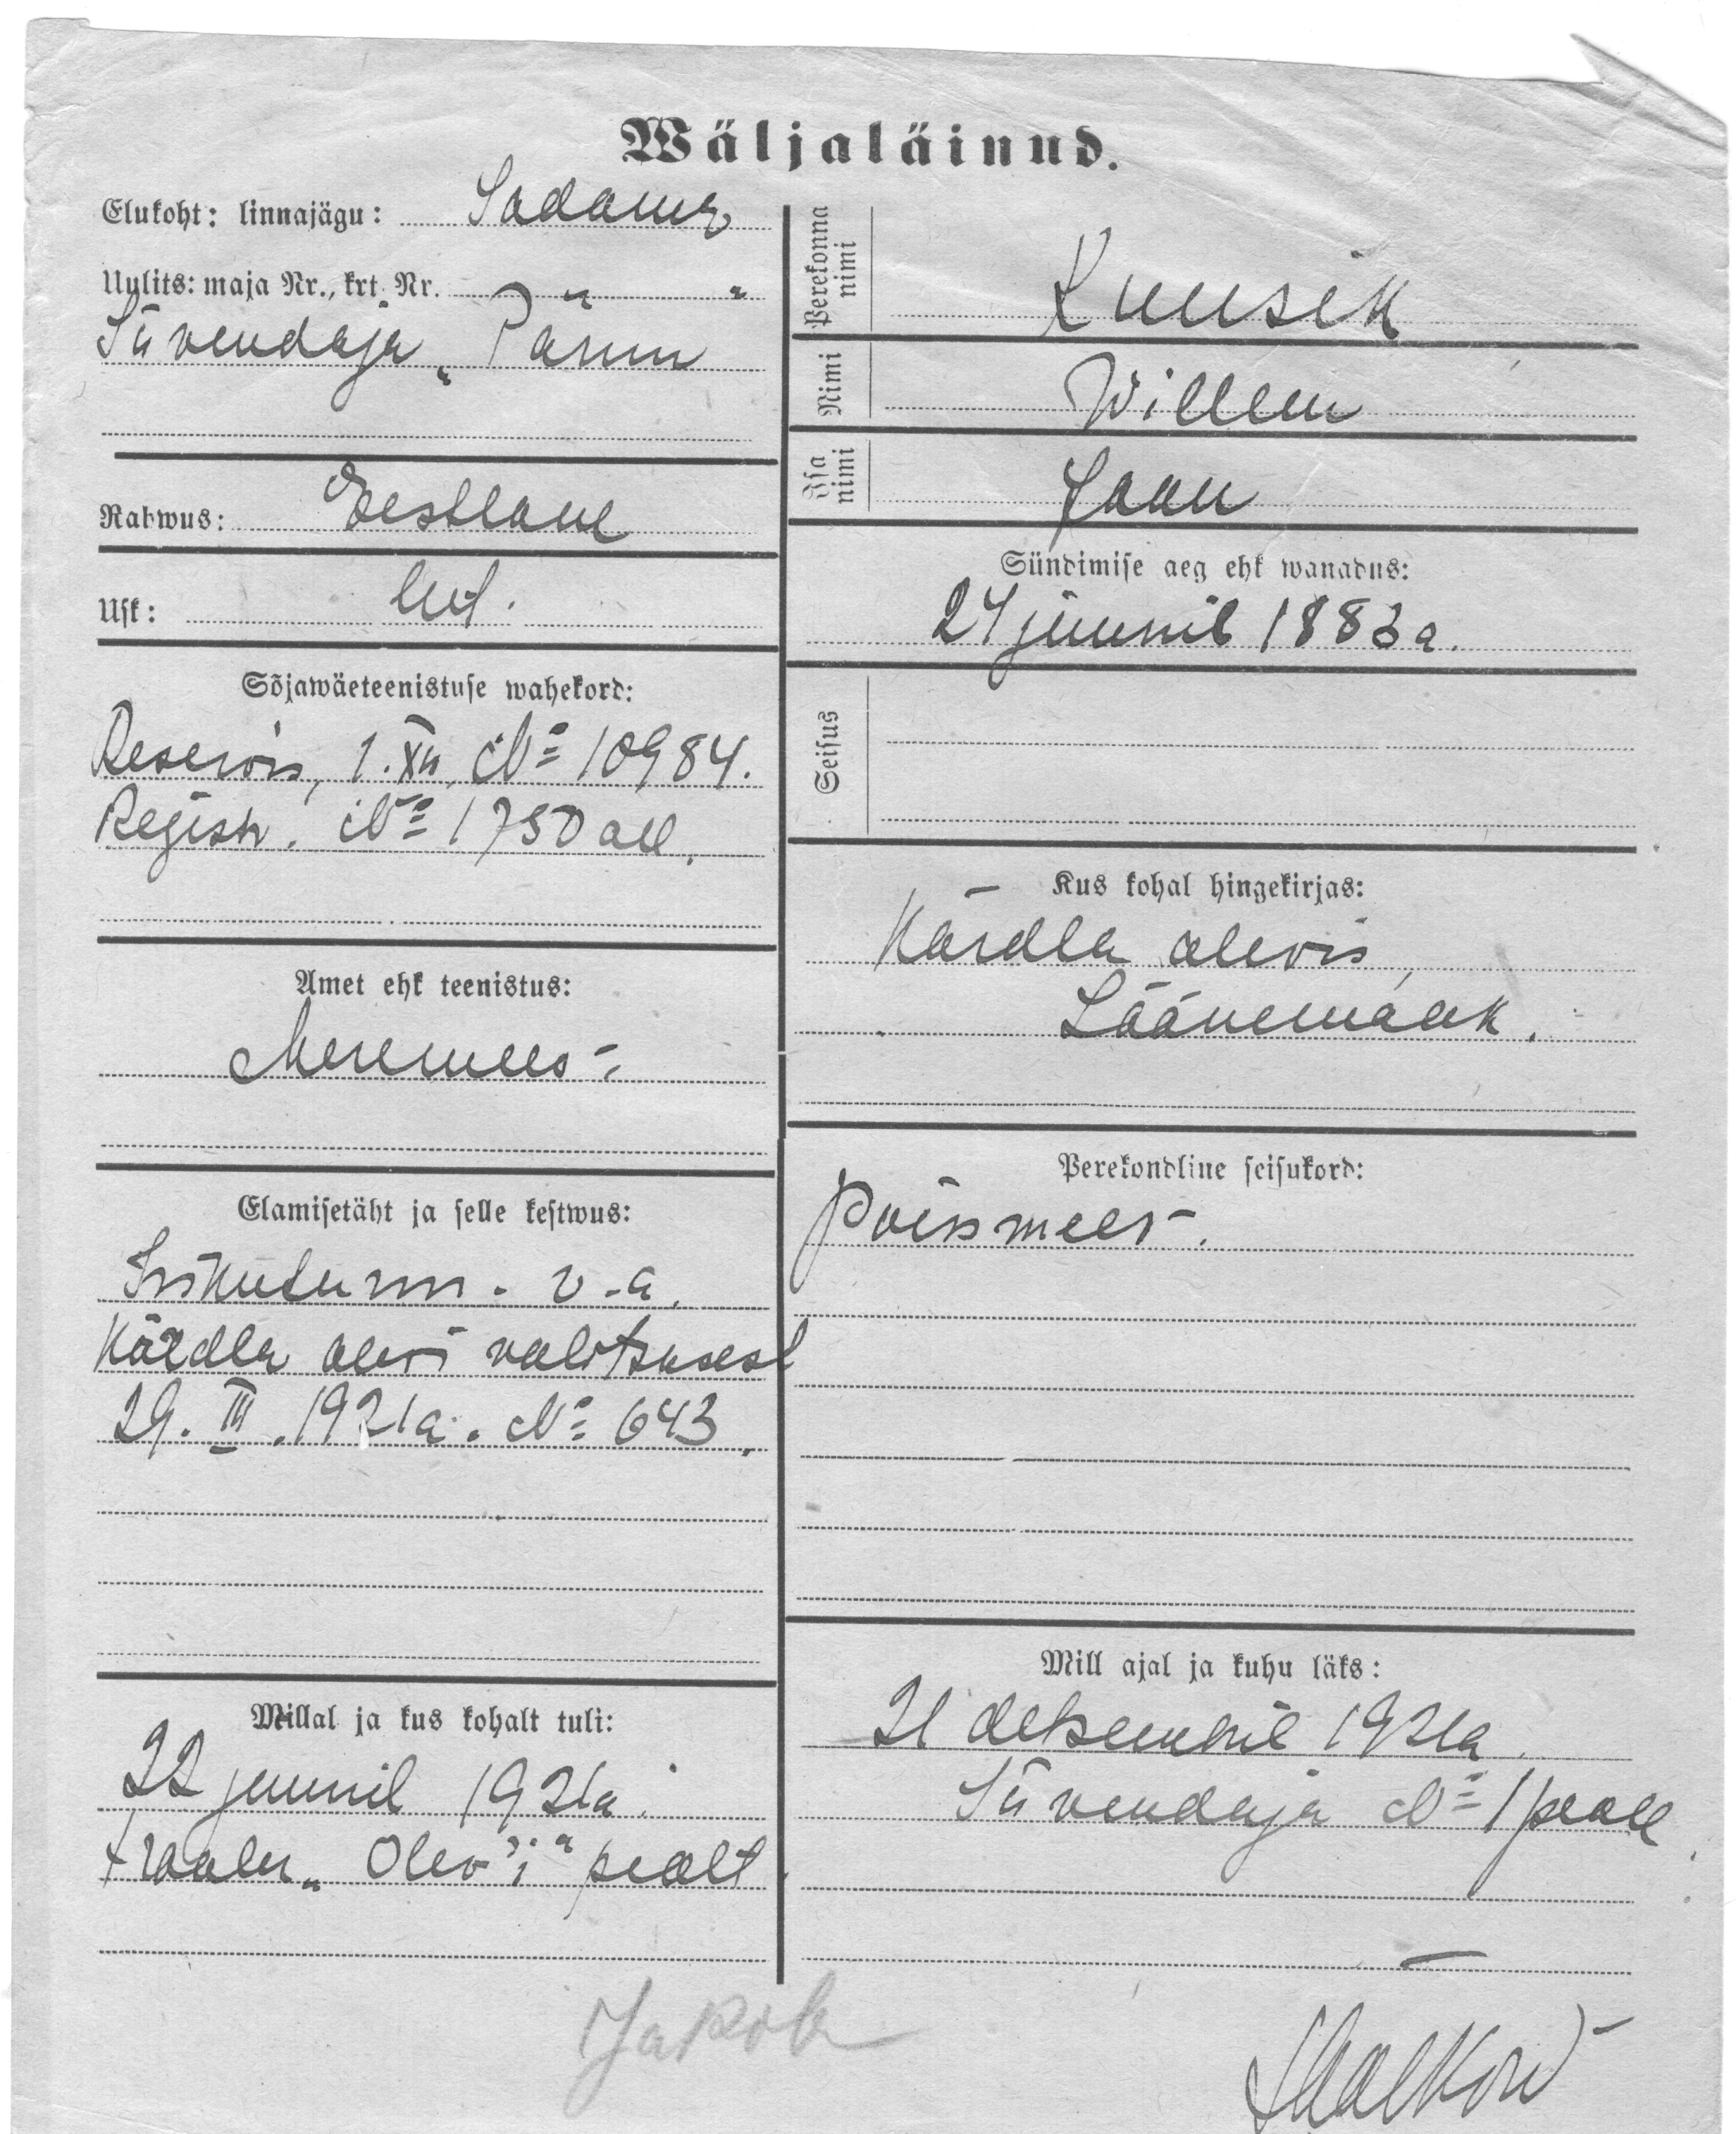 Wäljaläinud.
Elukoht: linnajägu: Sadama
Uulits: maja Nr., krt. Nr. " "
Süvendaja „Pärnu
Rahwus: Eestlane
Usk: lut.
Sõjawäeteenistuse wahekord:
Reservis, 1. XII, № 10984.
Registr. № 1750 all.
Amet ehk teenistus:
Meremees.
Elamisetäht ja selle kestwus:
Isikutunn. v-a.
Kärdla alevi valitsusest
29. III. 1921a. № 643.
Millal ja kus kohalt tuli:
22 juunil 1921a.
traaler „Olev'i" pealt.
Perekonna nimi Kuusik
Nimi Willem
Isa nimi Jaan
Sündimise aeg ehk wanadus:
24 juunil 1883 a.
Seisus
Kus kohal hingekirjas:
Kärdla alevis,
Läänemaak.
Perekondline seisukord:
Poissmees.
Mill ajal ja kuhu läks:
21 detsembril 1921a.
Süvendaja № 1 peale.
Jakob